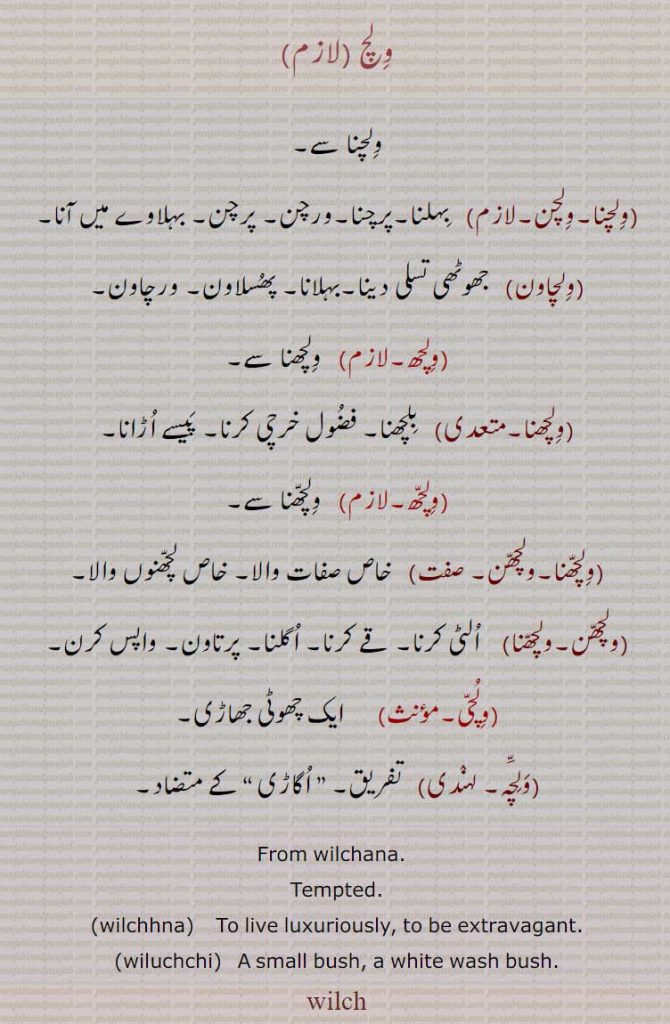 وِلچ (لازم)
وِلچنا سے۔
(وِلچنا۔وِلچن۔لازم) بِہلنا۔پرچنا۔ورچن۔ پرچن۔ بہلاوے میں آنا۔
(وِلچاون) جھوٹھی تسلی دینا۔بہلانا۔ پھُسلاون۔ ورچاون۔
(وِلچھ۔لازم) وِلچھنا سے۔
(وِلچھنا۔متعدی) بِلچھنا۔ فضُول خرچی کرنا۔ پَیسے اُڑانا۔
(وِلچّھ۔لازم) وِلچّھنا سے۔
(وِلچّھنا۔ولچّھن۔ صفت) خاص صفات والا۔ خاص لچّھنوں والا۔
(ولچّھن۔ولچّھنا) اُلٹی کرنا۔ قے کرنا۔ اُگلنا۔ پرتاون۔ واپس کرن۔
(وِلُچّی۔مؤنث) ایک چھوٹی جھاڑی۔
(وَلِچِّہ۔ لہنْدی) تفریق۔ ” اُگاڑی “ کے متضاد۔
From wilchana.
Tempted.
(wilchhna) To live luxuriously, to be extravagant.
(wiluchchi) A small bush, a white wash bush.
wilch